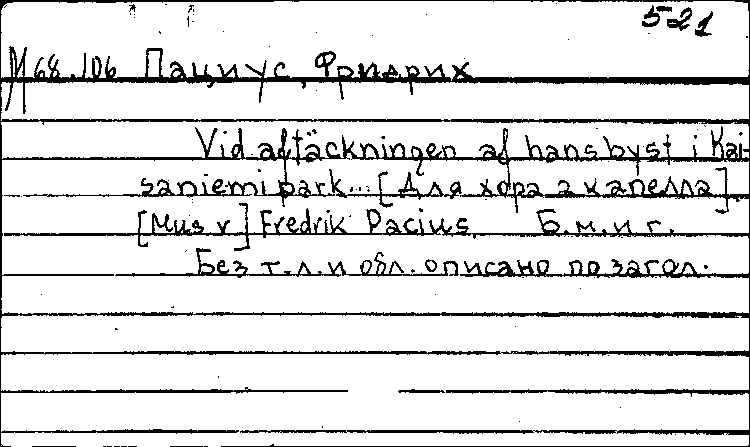 521
М 68.106 Пациус, Фридрих
Vid aftäckningen af hans byst i Kai-
saniemi park... [Для хора а капелла]
[Mus v] Fredrik Pacius. Б.м. и г.
Без т.л. и обл. описано по загол.